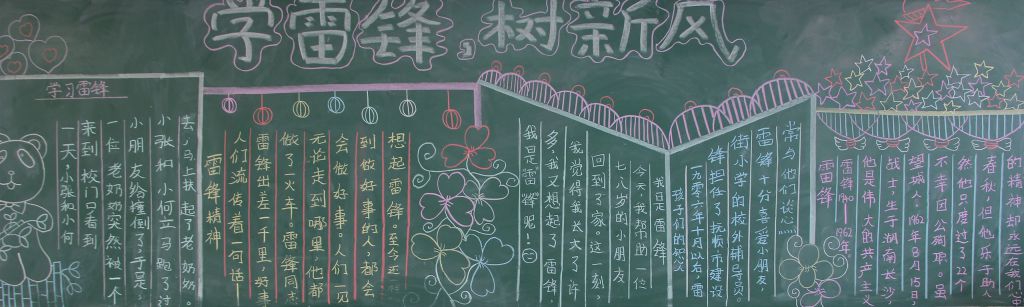 学雷锋,树新风
学习雷锋
一天,小张和小何
来到校门只看到
一位老奶奶突然被一个
小朋友给撞倒了,于是,
小张和小何立马跑了过
去,马上扶起了老奶奶。
雷锋精神
人们流传着一句话:
雷锋出差一千里,好事
做了一火车。雷锋同志
无论走到哪里,他都
会做好事。人们一见
到做好事的人,都会
想起雷锋。至今还
我是雷锋
今天我帮助一位
七八岁的小朋友
回到了家。这一刻,
我觉得我长大了许
多,我又想起了雷锋,
我是雷锋呢!
孩子们的
一九六〇年十月以后,雷
锋担任了抚顺市建设
街小学的校外辅导员。
雷锋十分喜爱小朋友,
常与他们谈心
雷锋
雷锋1940—1962年,
他是伟大的共产主义
战士生于湖南长沙,
望城人,1962年8月15日,
不幸因公殉职。虽
然他只度过了22个
春秋,但他乐于助
的精神却永远在我们